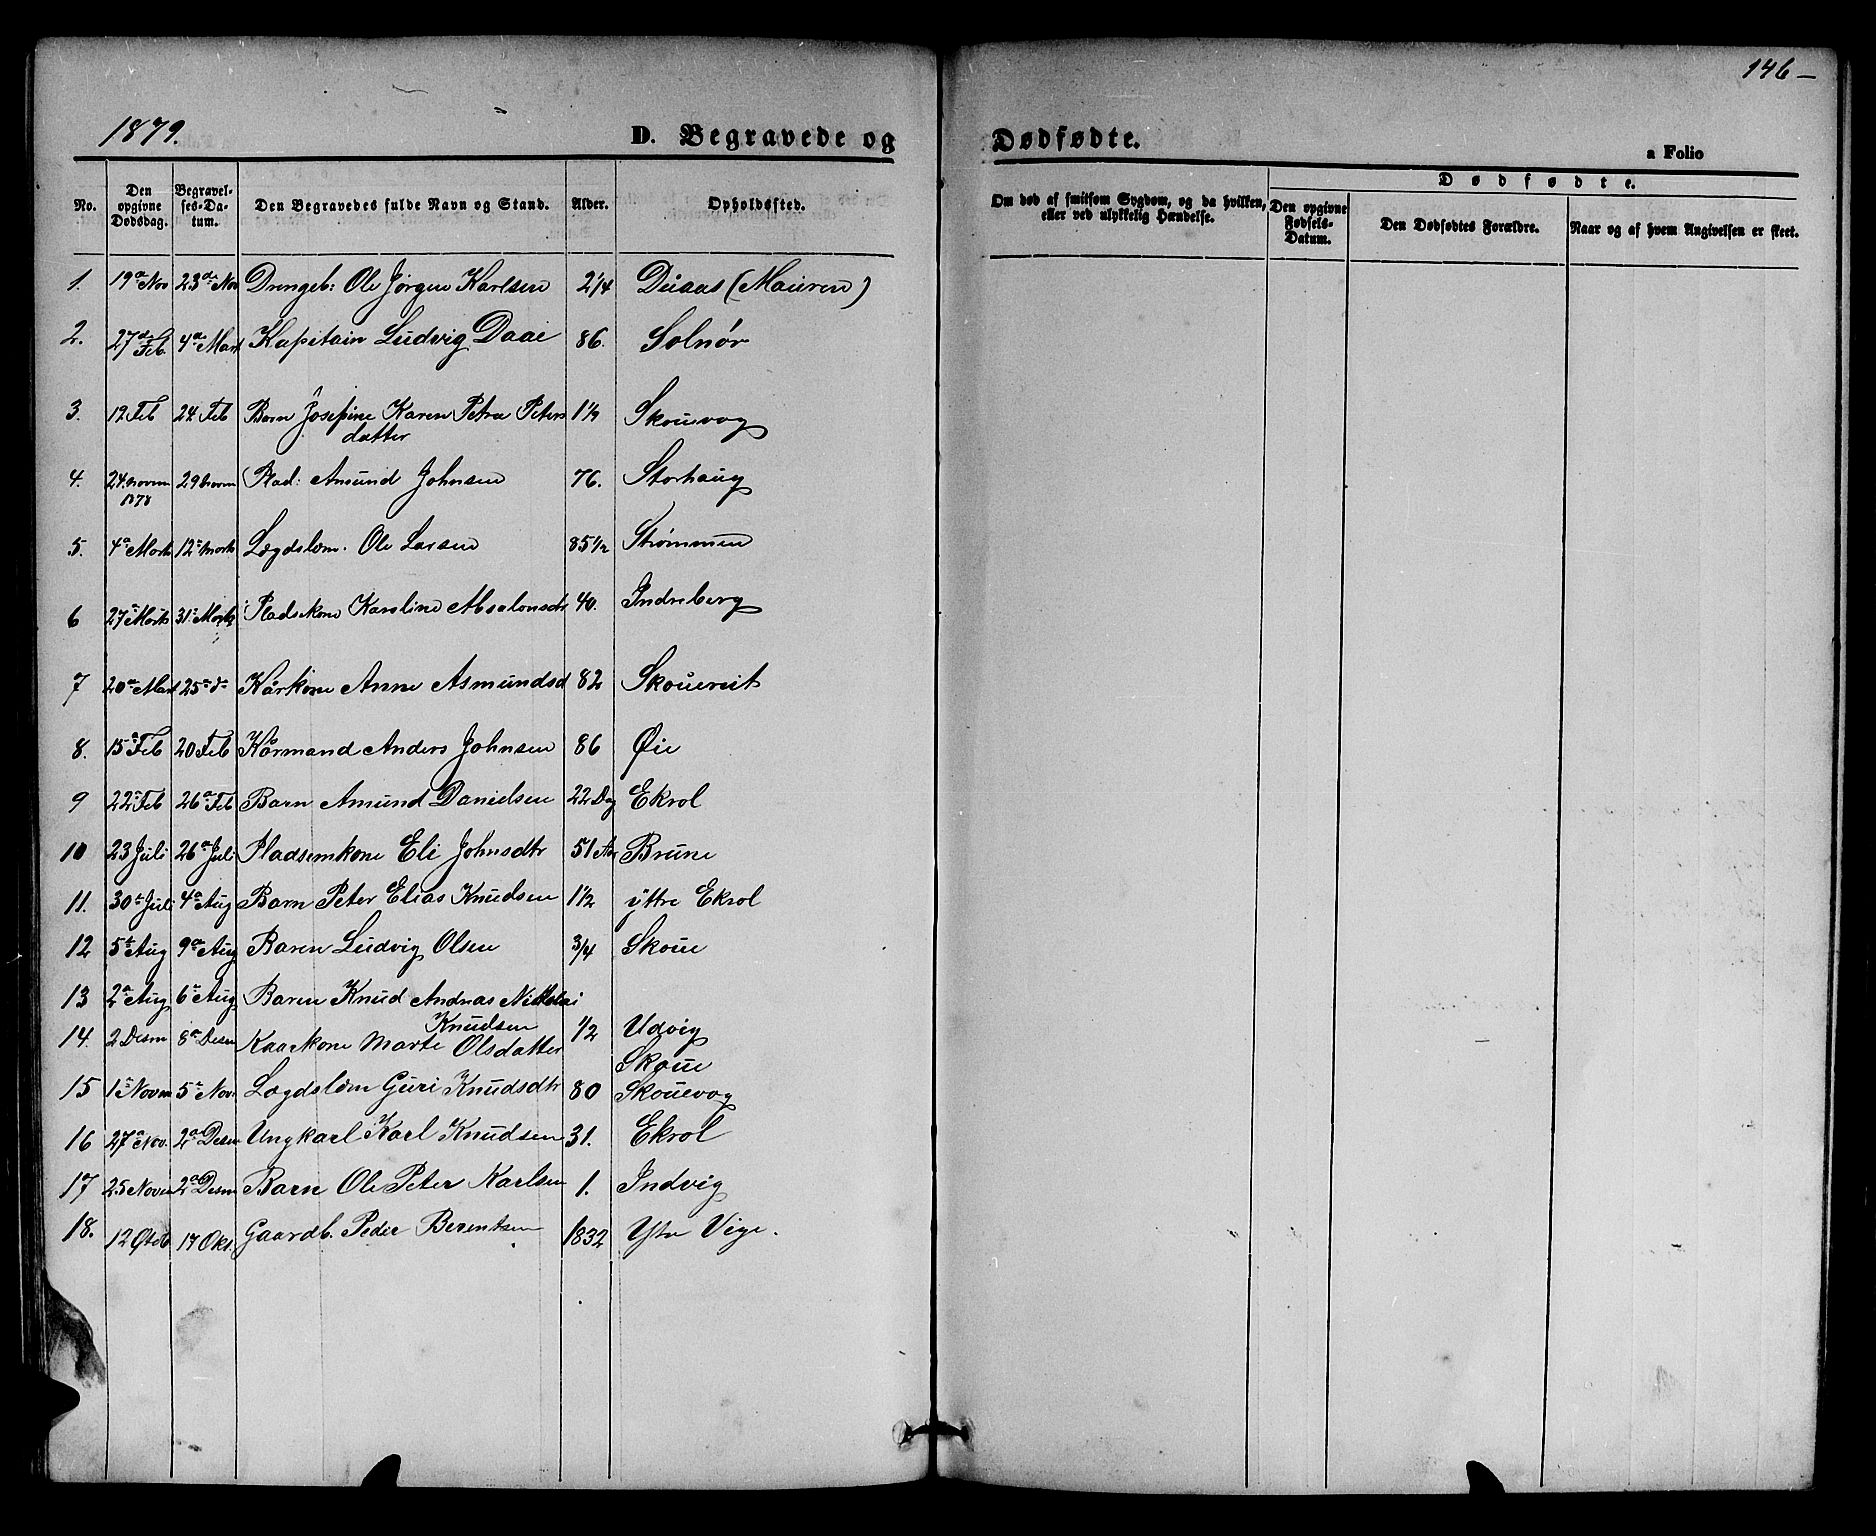 146 –
1879.
D. Begravede og
Dødfødte.
a Folio
No.
Den opgivne Dødsdag.
Begravelses-Datum.
Den Begravedes fulde Navn og Stand.
Alder.
Opholdssted.
Om død af smitsom Sygdom, og da hvilken, eller ved ulykkelig Hændelse.
Dødfødte.
Den opgivne Fødsels-Datum.
Den Dødfødtes Forældre.
Naar og af hvem Angivelsen er skeet.
1. 19de Nov 23de Nov Drengeb: Ole Jørgen Karlsen 2 1/4 Duaas (Mauren)
2. 27de Feb 4de Mart Kapitain Ludvig Daae 86. Solnør
3. 19 Feb 24 Feb Barn Josefine Karen Petra Peters 1 1/2 Skouevog
datter
4. 24 novm 29 novm Plad: Amund Johnsen 76. Storhaug
1878
5. 4de Marts 12 marts Lægdslem. Ole Larsen 85 1/2 Strømmen
6 27 Marts 31 Marts Pladsekone Karoline Absalonsdtr 40. Indreberg
7 20de Mart 25 do Kårkone Anne Asmundsd 82 Skouereit
8. 15 Feb 20 Feb Kårmand Anders Johnsen 86 Øie
9 22 Feb 26 Feb Barn Amund Danielsen 22 Dag Ekrol
10 23 Juli 26 Juli Pladsemkone Eli Johnsdtr 51 Aar Brune
11. 30te Juli 4de Aug Barn Peter Elias Knudsen 1 1/2 ÿttre Ekrol
12 5te Aug 9de Aug Baren Ludvig Olsen 3/4 Skoue
13 2de Aug 6te Aug Baren Knud Andreas Nikkolai
Knudsen 1/2 Udvig
14. 2 Desm 8de Desm Kaarkone Marte Olsdatter Skoue
15 1te Novm 5te Nov. Lægdslem Guri Knudsdtr 80 Skouevog
16 27de Nov. 2de Desm Ungkarl Karl Knudsen 31. Ekrol
17 25 Novem 2de Desm Barn Ole Peter Karlsen 1. Indvig
18. 12 Øtob 17 Okt. Gaardb. Peder Berentsen 1832 Ytre Vige.